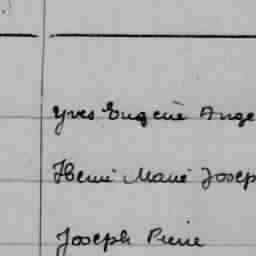 Yves Eugène Ange
Henri Marie Josep
Joseph Pierre